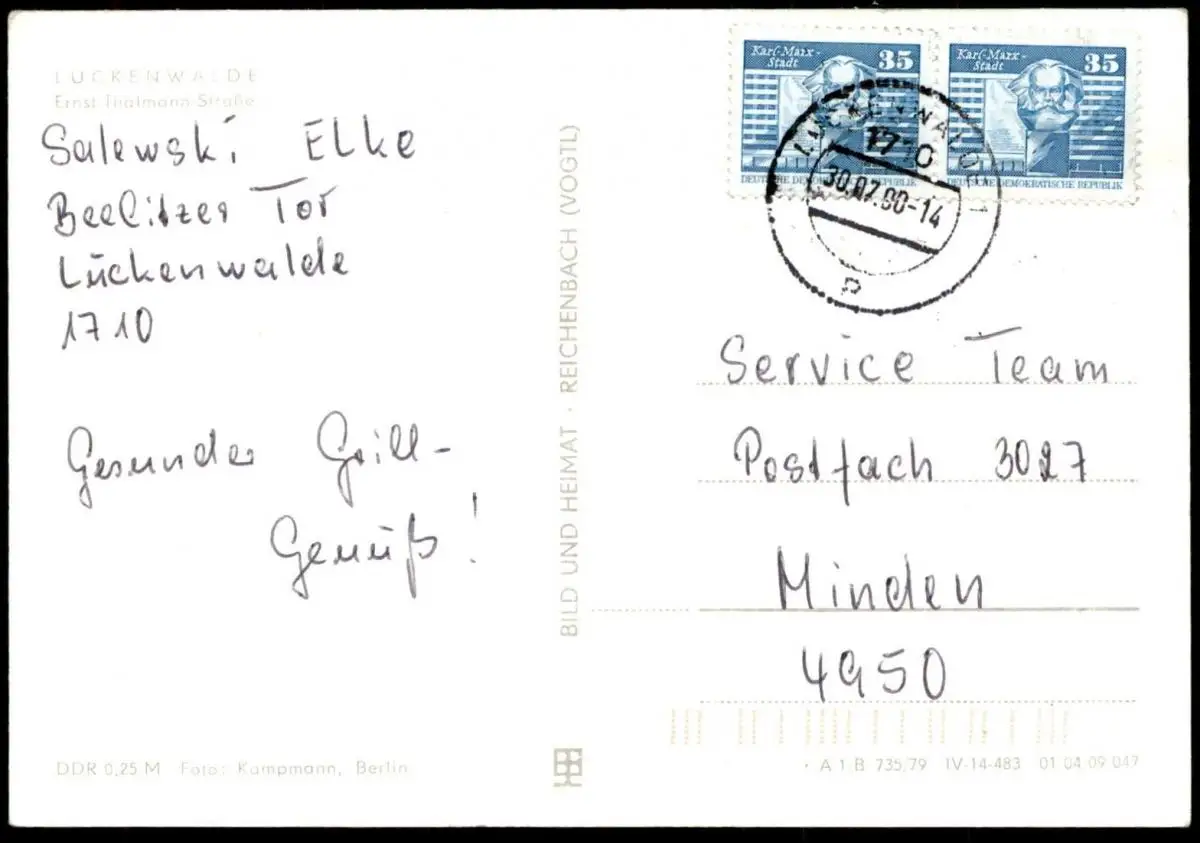 LUCKENWALDE
Ernst-Thälmann-Straße
Salewski, Elke
Beelitzer Tor
Luckenwalde
1710
Gesunder Grill-
Genuß!
DDR 0,25 M Foto: Kampmann, Berlin
BILD UND HEIMAT · REICHENBACH (VOGTL)
Karl-Marx-
Stadt
35
DEUTSCHE DEMOKRATISCHE REPUBLIK
Karl-Marx-
Stadt
35
DEUTSCHE DEMOKRATISCHE REPUBLIK
LUCKENWALDE 1
1710
30.07.90-14
P
Service Team
Postfach 3027
Minden
4950
· A 1 B 735/79 IV-14-483 01 04 09 047